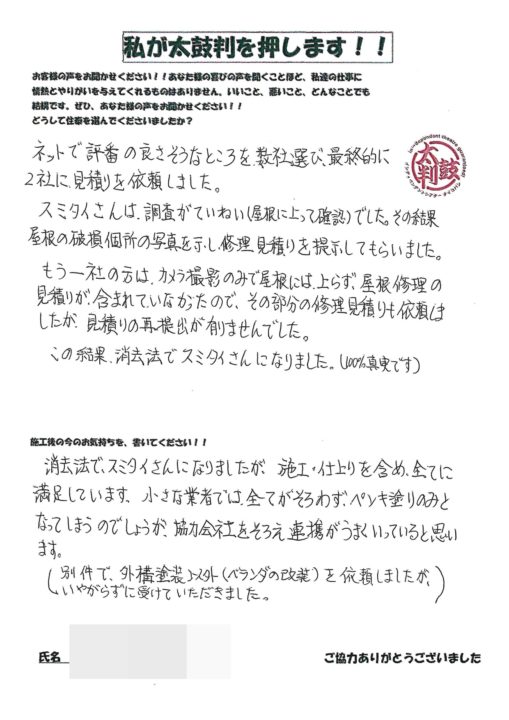 私が太鼓判を押します！！
お客様の声をお聞かせください！！あなた様の喜びの声を聞くことほど、私達の仕事に
情熱とやりがいを与えてくれるものはありません。いいこと、悪いこと、どんなことでも
結構です。ぜひ、あなた様の声をお聞かせください！！
どうして住泰を選んでくださいましたか？
ネットで評番の良さそうなところを、数社選び、最終的に
2社に、見積りを依頼しました。
スミタイさんは、調査がていねい（屋根に上って確認）でした。その結果
屋根の破損個所の写真を示し、修理見積りを提示してもらいました。
もう一社の方は、カメラ撮影のみで屋根には、上らず、屋根修理の
見積りが、含まれていなかったので、その部分の修理見積りも依頼は
したが、見積りの再提出が有りませんでした。
この結果、消去法でスミタイさんになりました。（100%真実です）
太鼓判
施工後の今のお気持ちを、書いてください！！
消去法で、スミタイさんになりましたが、施工・仕上りを含め、全てに
満足しています、小さな業者では、全てがそろわず、ペンキ塗りのみと
なってしまうのでしょうが、協力会社をそろえ連携がうまくいっていると思い
ます。
（別件で、外構塗装以外（ベランダの改装）を依頼しましたが、
いやがらずに受けていただきました。）
氏名
ご協力ありがとうございました